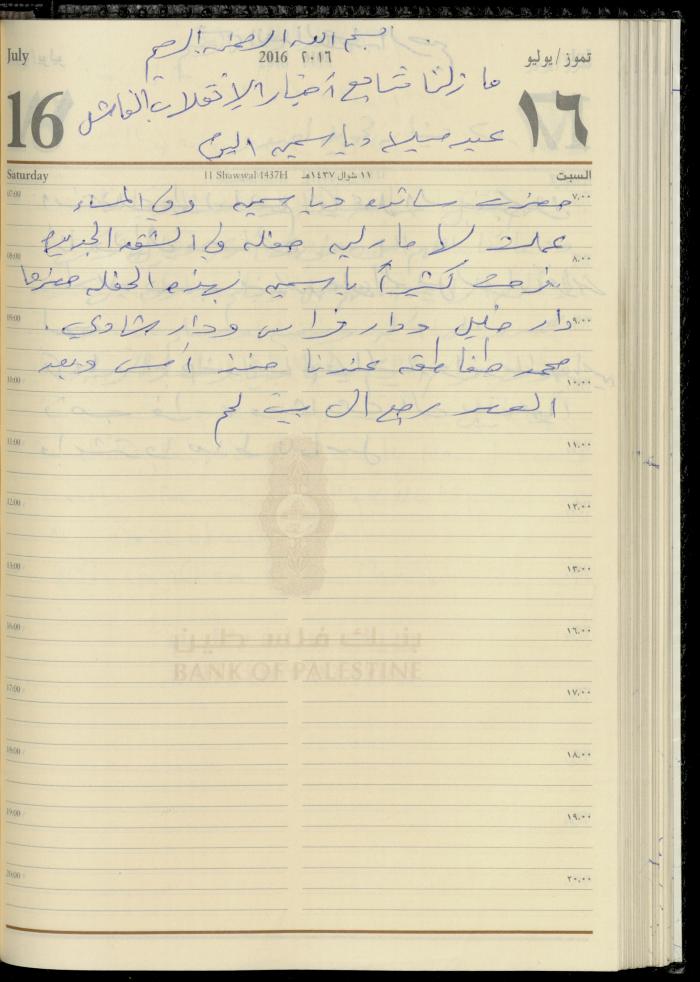 بسم الله الرحمن الرحيم
July 2016 ٢٠١٦ تموز / يوليو
16 ١٦
ما زلنا نتابع أخبار الإنقلاب الفاشل
عيد ميلاد ياسمين اليوم
Saturday 11 Shawwal 1437H ١١ شوال ١٤٣٧هـ السبت
07:00 ٧,٠٠
حضرت ساندي وياسمين وفي المساء
عملت لها ماريه حفله في الشقه الجديده
08:00 ٨,٠٠
فرحت كثيراً ياسمين بهذه الحفله حضرها
09:00 ٩,٠٠
دار خليل ودار فراس ودار شادي .
محمد طقاطقه عندنا منذ أمس وبعد
10:00 ١٠,٠٠
العصر رجع الى بيت لحم
11:00 ١١,٠٠
12:00 ١٢,٠٠
13:00 ١٣,٠٠
16:00 ١٦,٠٠
بنك فلسطين
BANK OF PALESTINE
17:00 ١٧,٠٠
18:00 ١٨,٠٠
19:00 ١٩,٠٠
20:00 ٢٠,٠٠